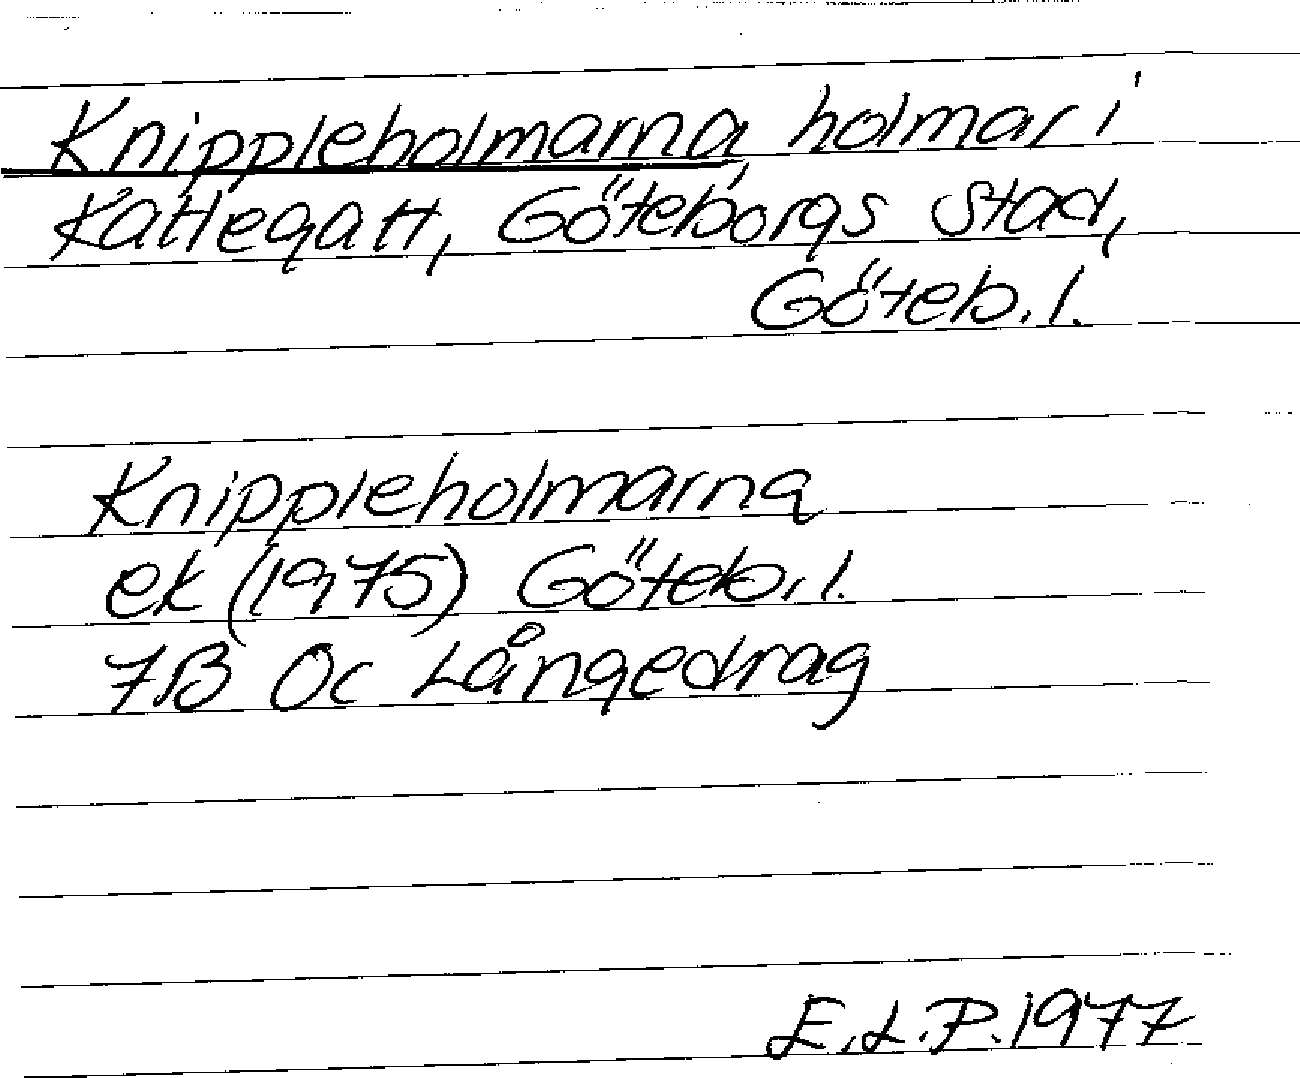 Knippleholmarna, holmar i
Kattegatt, Göteborgs stad,
Göteb. l.
Knippleholmarna
ek (1975) Göteb. l.
7B 0c Långedrag
E.L.P. 1977